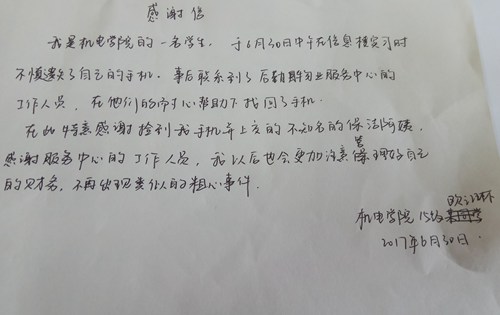 感谢信
我是机电学院的一名学生，于6月30日中午在信息楼实习时
不慎遗失了自己的手机。事后联系到了后勤物业服务中心的
工作人员，在他们的耐心帮助下找回了手机。
在此特意感谢捡到我手机并上交的不知名的保洁阿姨，
感谢服务中心的工作人员，我以后也会更加注意保管好自己
的财务，不再出现类似的粗心事件。
机电学院 15级
2017年6月30日.